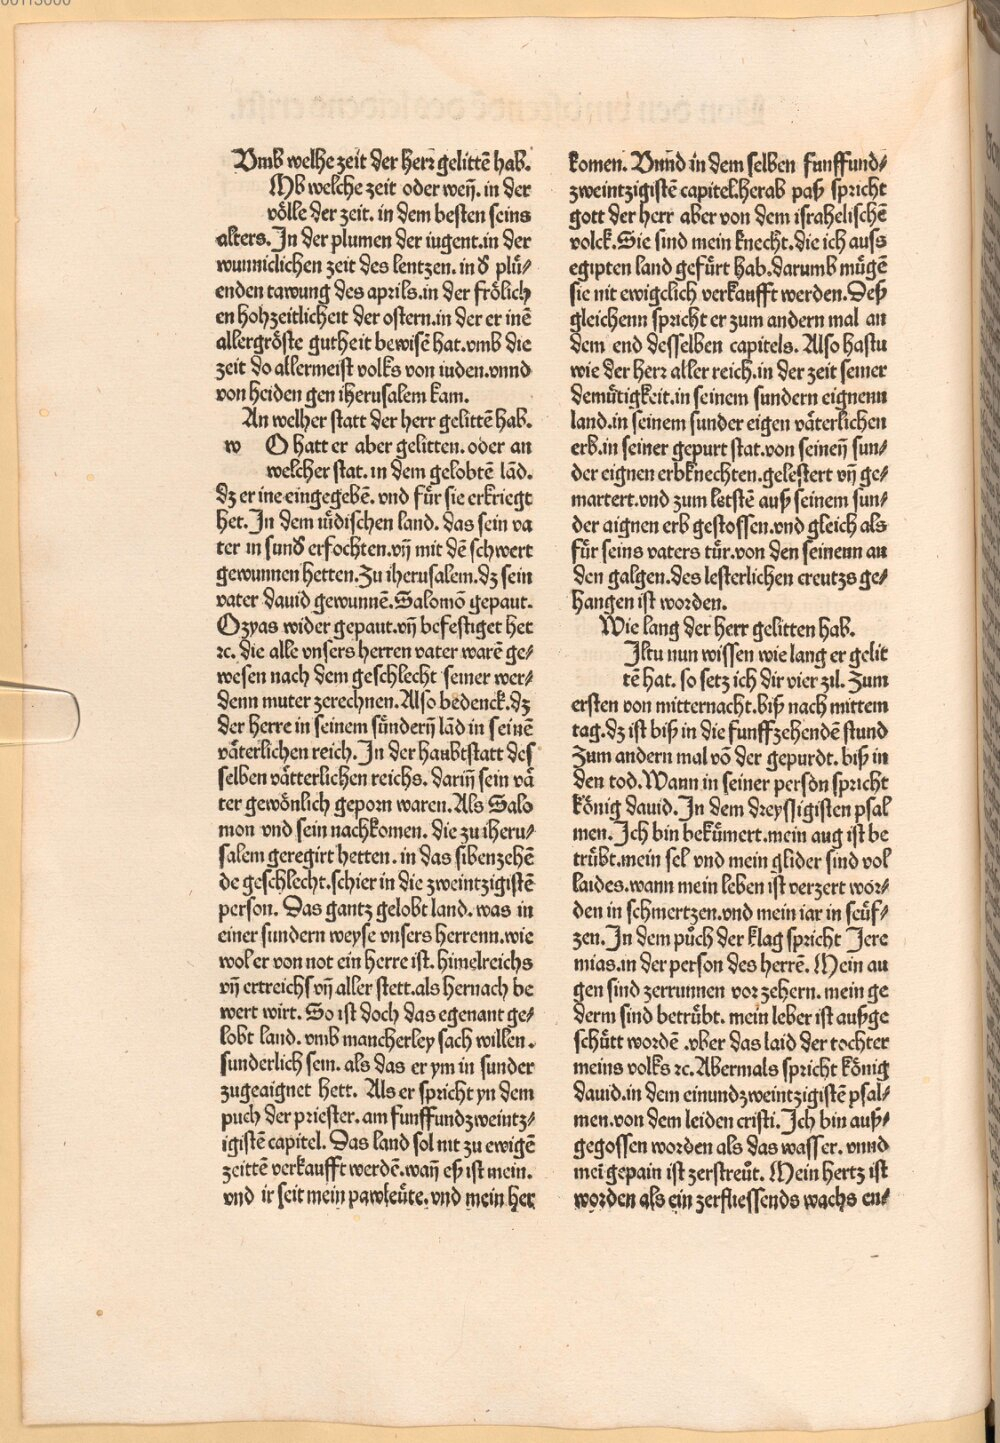 Vmb welhe zeit der herr gelittẽ hab.
Mb welche zeit oder weñ. in der
völle der zeit. in dem besten seins
alters. In der plumen der iugent.in der
wunniclichen zeit des lentzen. in d̕ plü⸗
enden tawung des aprils.in der frölich
en hohzeitlicheit der ostern.in der er inẽ
allergröste gutheit bewisẽ hat.vmb die
zeit do allermeist volks von iuden.vnnd
von heiden gen iherusalem kam.
An welher statt der herr gelittẽ hab.
w O hatt er aber gelitten. oder an
welcher stat. in dem gelobtẽ lãd.
dz er ine eingegebẽ. vnd für sie erkriegt
het. In dem iüdischen land. das sein va
ter in sund̕ erfochten.vñ mit dẽ schwert
gewunnen hetten. Zu iherusalem.dz sein
vater dauid gewunnẽ. Salomõ gepaut.
Ozyas wider gepaut.vñ befestiget het
ꝛc. die alle vnsers herren vater warẽ ge⸗
wesen nach dem geschlecht seiner wer⸗
denn muter zerechnen. Also bedenck.dz
der herre in seinem sünderñ lãd in seinẽ
väterlichen reich. In der haubtstatt des
selben vätterlichen reichs. dariñ sein vä
ter gewönlich geporn waren. Als Salo
mon vnd sein nachkomen. die zu iheru⸗
salem geregirt hetten. in das sibenzehẽ
de geschlecht.schier in die zweintzigistẽ
person. Das gantz gelobt land. was in
einer sundern weyse vnsers herrenn.wie
wol er von not ein herre ist. himelreichs
vñ ertreichs vñ aller stett.als hernach be
wert wirt. So ist doch das egenant ge⸗
lobt land. vmb mancherley sach willen.
sunderlich sein. als das er ym in sunder
zugeaignet hett. Als er spricht yn dem
puch der priester. am funffundzweintz⸗
igistẽ capitel. Das land sol nit zu ewigẽ
zeittẽ verkaufft werdẽ.wañ eß ist mein.
vnd ir seit mein pawleüte. vnd mein her
komen. Vnnd in dem selben funffund⸗
zweintzigistẽ capitel.herab paß spricht
gott der herr aber von dem israhelischẽ
volck. Sie sind mein knecht.die ich auss
egipten land gefürt hab.darumb mügẽ
sie nit ewigclich verkaufft werden. Deß
gleichenn spricht er zum andern mal an
dem end desselben capitels. Also hastu
wie der herr aller reich.in der zeit seiner
demütigkeit.in seinem sundern eignenn
land.in seinem sunder eigen väterlichen
erb.in seiner gepurt stat.von seineñ sun⸗
der eignen erbknechten.gelestert vñ ge⸗
martert.vnd zum letstẽ auß seinem sun⸗
der aignen erb gestossen.vnd gleich als
für seins vaters tür.von den seinenn an
den galgen.des lesterlichen creutzs ge⸗
hangen ist worden.
Wie lang der herr gelitten hab.
Iltu nun wissen wie lang er gelit
tẽ hat. so setz ich dir vier zil. Zum
ersten von mitternacht.biß nach mittem
tag.dz ist biß in die funffzehendẽ stund
Zum andern mal võ der gepurdt. biß in
den tod. Wann in seiner person spricht
könig dauid. In dem dreyssigisten psal
men. Ich bin bekümert.mein aug ist be
trübt.mein sel vnd mein glider sind vol
laides.wann mein leben ist verzert wor⸗
den in schmertzen.vnd mein iar in seüf⸗
zen. In dem půch der klag spricht Jere
mias.in der person des herrẽ. Mein au
gen sind zerrunnen vor zehern. mein ge
derm sind betrübt. mein leber ist außge
schütt wordẽ .vber das laid der tochter
meins volks ꝛc. Abermals spricht könig
dauid.in dem einundzweintzigistẽ psal⸗
men.von dem leiden cristi. Ich bin auß⸗
gegossen worden als das wasser. vnnd
meĩ gepain ist zerstreüt. Mein hertz ist
worden als ein zerfliessends wachs en⸗